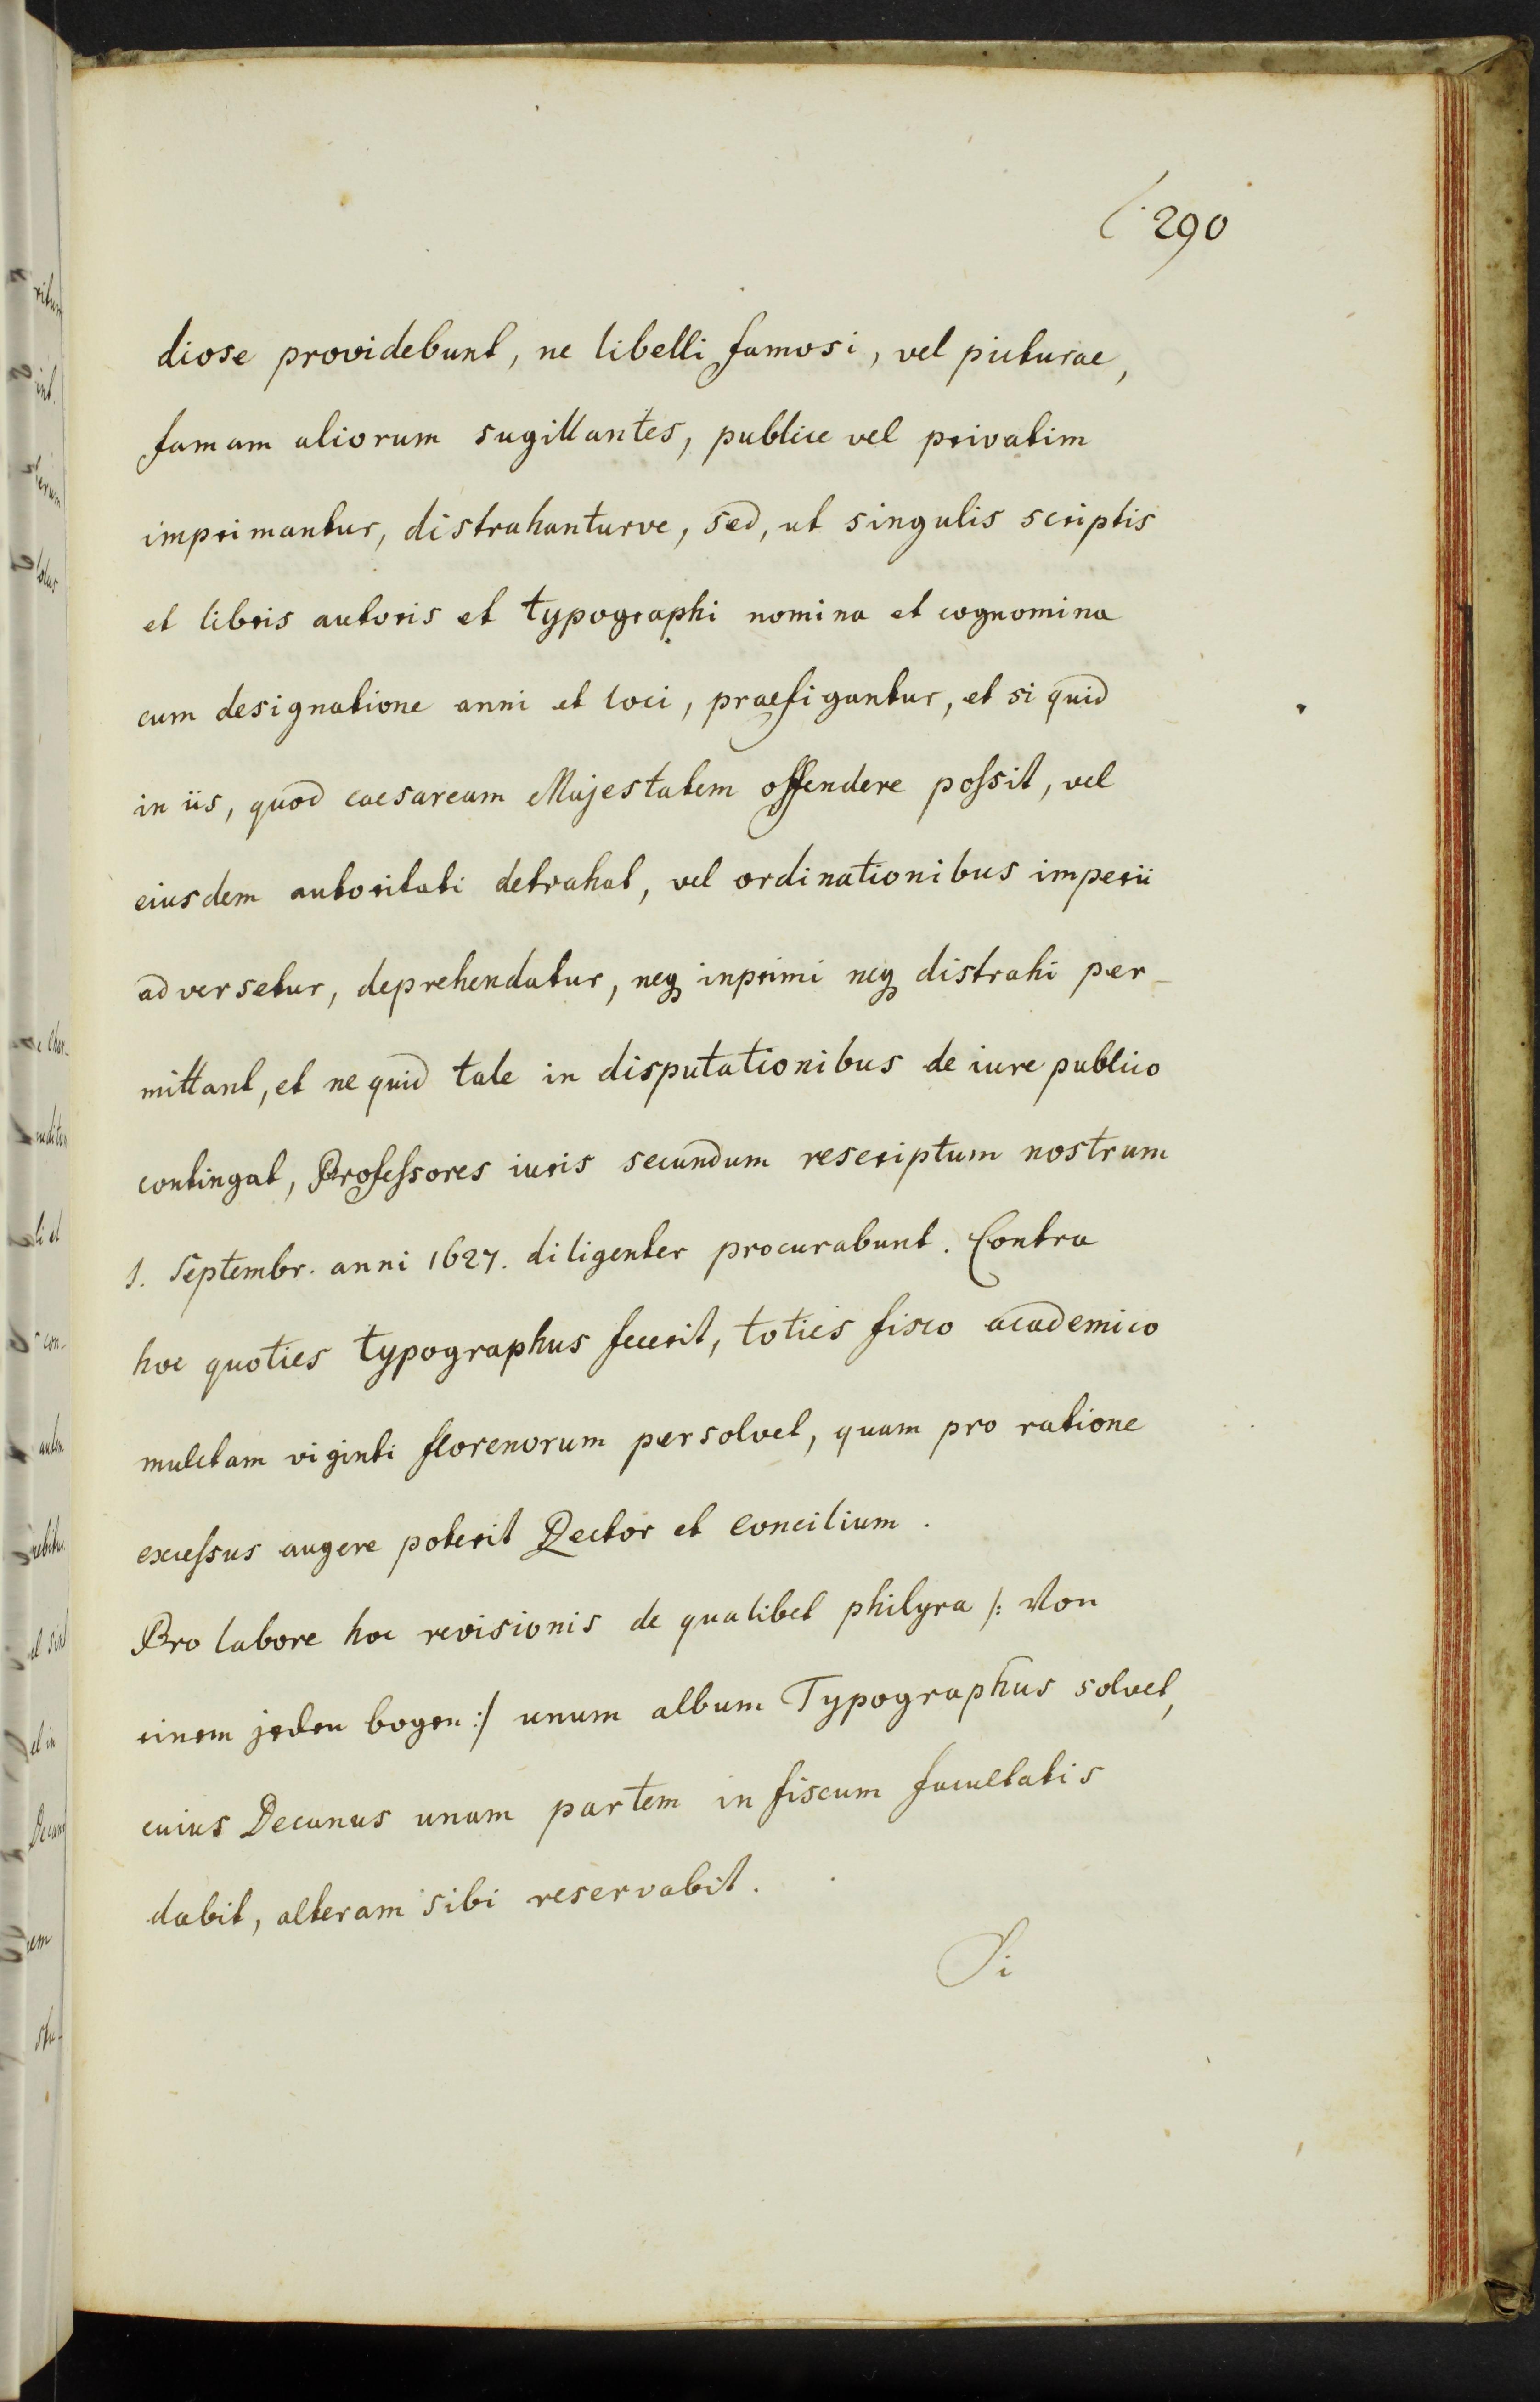 290
diose providebunt, ne libelli famosi, vel picturae,
famam aliorum sugillantes, publice vel privatim
imprimantur, distrahanturve, sed, ut singulis scriptis
et libris autoris et typographi nomina et cognomina
cum designatione anni et loci, praefigantur, et si quid
in iis, quod caesaream Majestatem offendere possit, vel
eiusdem autoritati detrahat, vel ordinationibus imperii
adversetur, deprehendatur, neq inprimi neq distrahi per-
mittant, et ne quid tale in disputationibus de iure publico
contingat, Professores iuris secundum rescriptum nostrum
1. Septembr. anni 1627. diligenter procurabunt. Contra
hoc quoties typographus fecerit, toties fisco academico
mulctam viginti florenorum persolvet, quam pro ratione
excessus augere poterit Rector et Concilium.
Pro labore hoc revisionis de qualibet philyra /: Von
einem jeden bogen :/ unum album Typographus solvet,
cuius Decanus unam partem in fiscum facultatis
dabit, alteram sibi reservabit.
Si